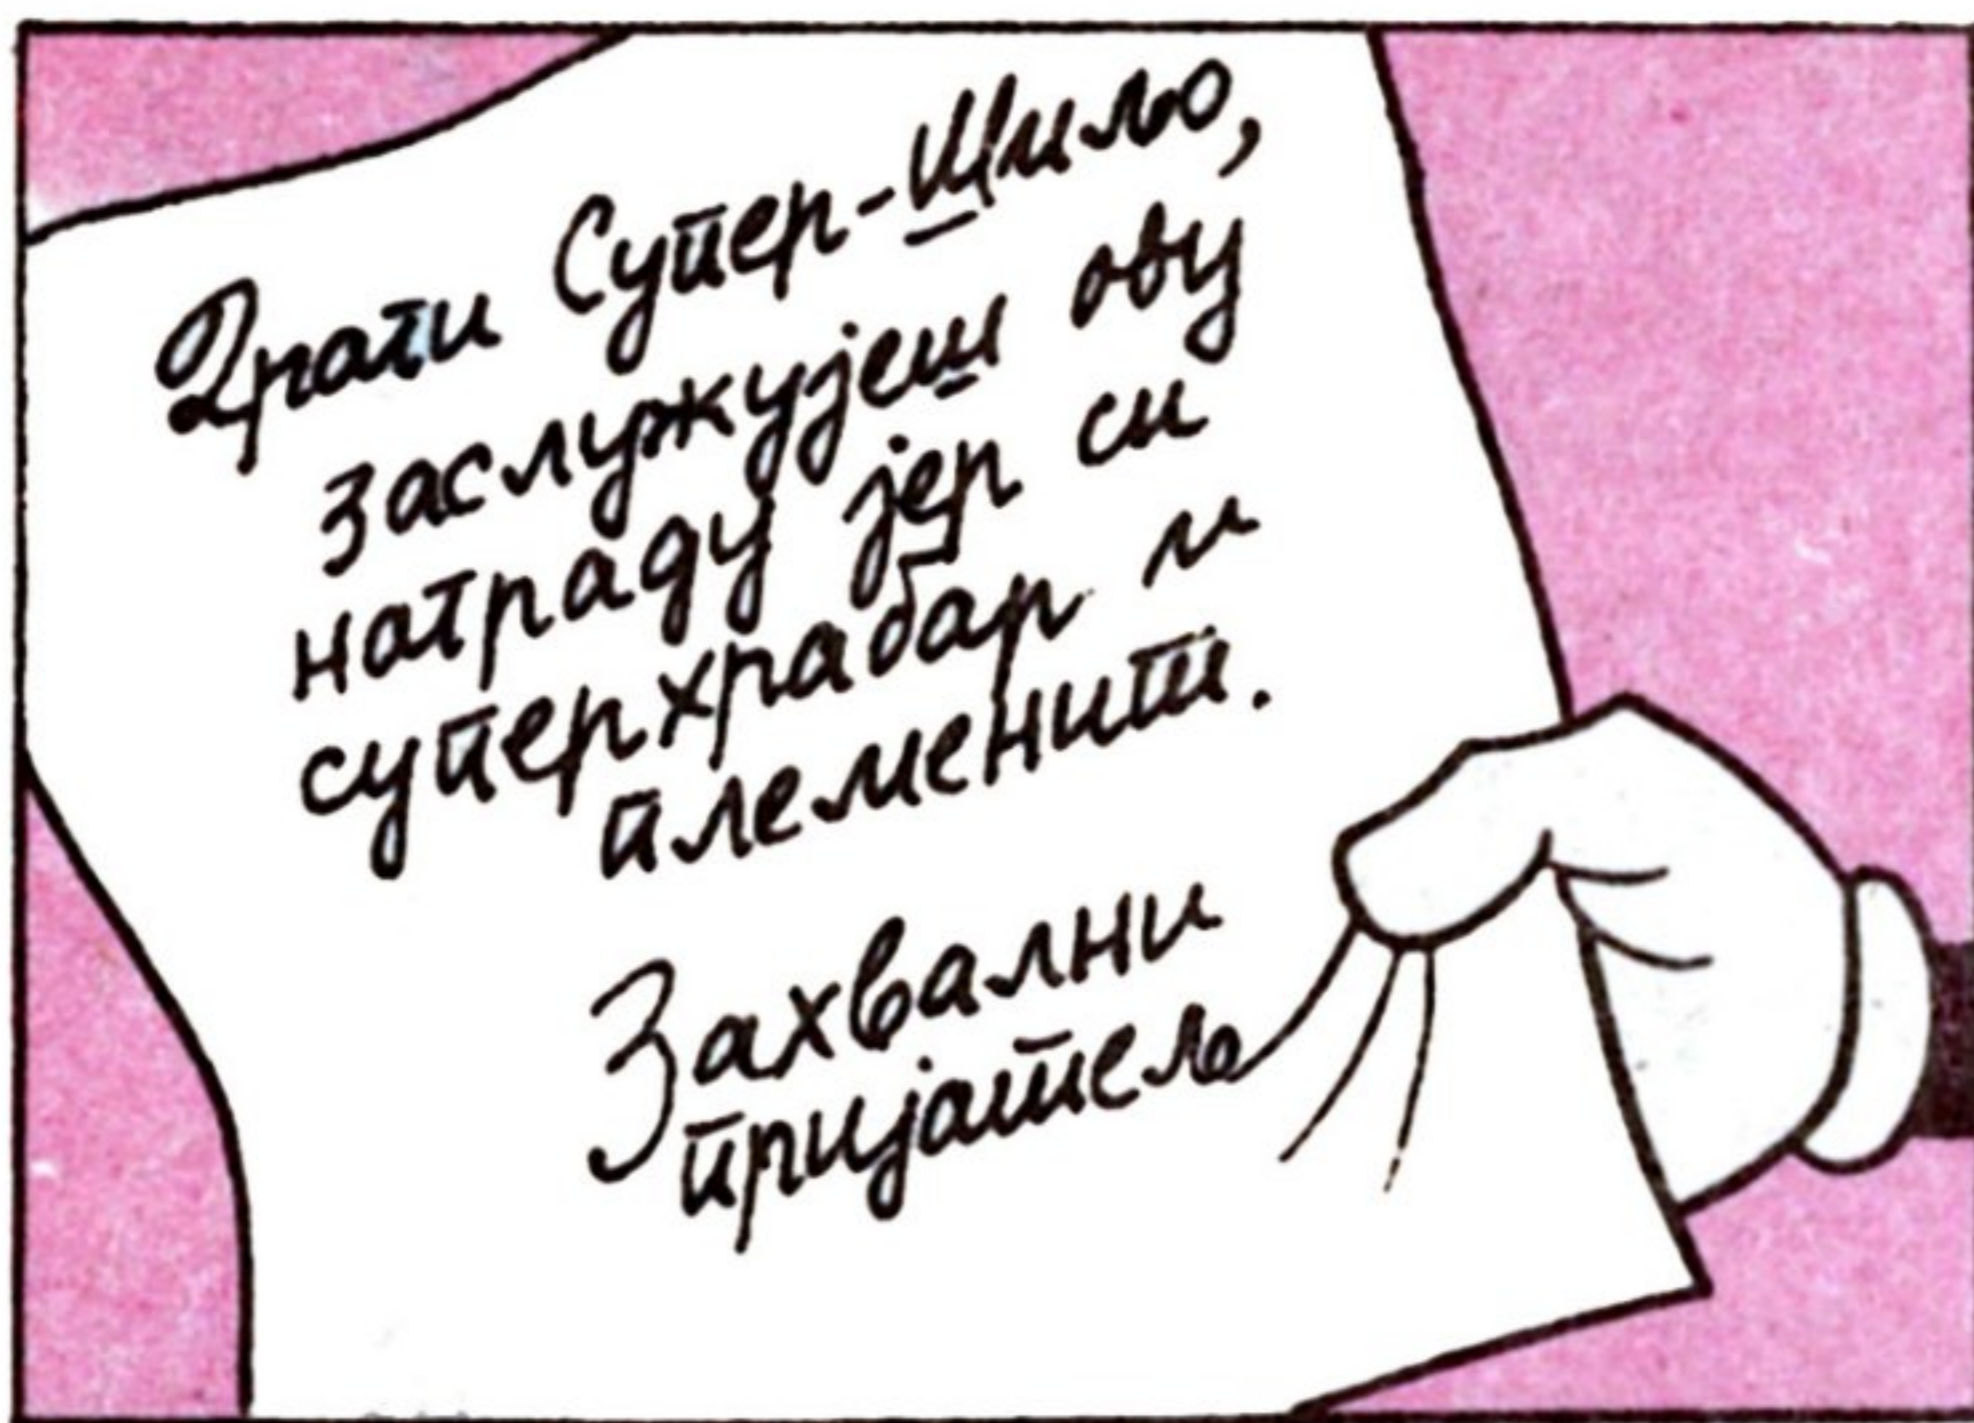 Драги Супер-Шиљо,
заслужујеш ову
награду јер си
суперхрабар и
племенит.
Захвални
пријатељ